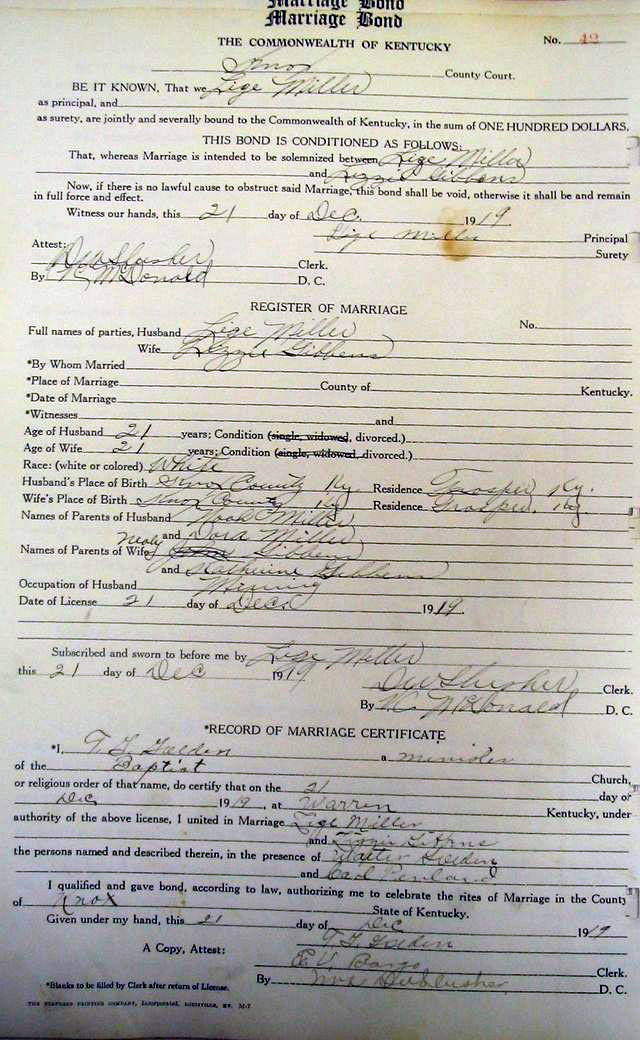 Marriage Bond
Marriage Bond
THE COMMONWEALTH OF KENTUCKY No. 42
Knox County Court.
BE IT KNOWN, That we Lige Miller
as principal, and
as surety, are jointly and severally bound to the Commonwealth of Kentucky, in the sum of ONE HUNDRED DOLLARS.
THIS BOND IS CONDITIONED AS FOLLOWS:
That, whereas Marriage is intended to be solemnized between Lige Miller
and Lizzie Gibbens
Now, if there is no lawful cause to obstruct said Marriage, this bond shall be void, otherwise it shall be and remain
in full force and effect.
Witness our hands, this 21 day of Dec. 1919.
Lige Miller Principal
Surety
Attest:
DW Slusher Clerk.
By McDonald D. C.
REGISTER OF MARRIAGE
Full names of parties, Husband Lige Miller No.
Wife Lizzie Gibbens
*By Whom Married
*Place of Marriage County of Kentucky.
*Date of Marriage
*Witnesses and
Age of Husband 21 years; Condition (single, widowed, divorced.)
Age of Wife 21 years; Condition (single, widowed, divorced.)
Race: (white or colored) White
Husband's Place of Birth Knox County Ky. Residence Trosper Ky.
Wife's Place of Birth Knox County Ky Residence Trosper, Ky.
Names of Parents of Husband Noah Miller
and Dora Miller
Names of Parents of Wife Nealy Gibbens
and Katherine Gibbens
Occupation of Husband Mining
Date of License 21 day of Dec. 1919.
Subscribed and sworn to before me by Lige Miller
this 21 day of Dec 1919
DW Slusher Clerk.
By McDonald D. C.
*RECORD OF MARRIAGE CERTIFICATE
*I, T. G. Golden a minister
of the Baptist Church,
or religious order of that name, do certify that on the 21 day of
Dec 1919, at Warren Kentucky, under
authority of the above license, I united in Marriage Lige Miller
and
the persons named and described therein, in the presence of Walter Golden
and Carl Penland
I qualified and gave bond, according to law, authorizing me to celebrate the rites of Marriage in the County
of Knox State of Kentucky.
Given under my hand, this 21 day of Dec 1919
T. G. Golden
A Copy, Attest: Bargo Clerk.
By D. C.
*Blanks to be filled by Clerk after return of License.
THE STANDARD PRINTING COMPANY, Incorporated, LOUISVILLE, KY. M-7